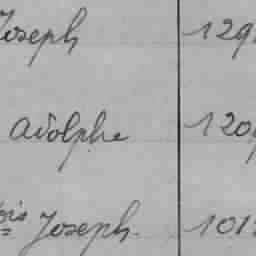 Joseph 129
Adolphe 120
Joseph. 101